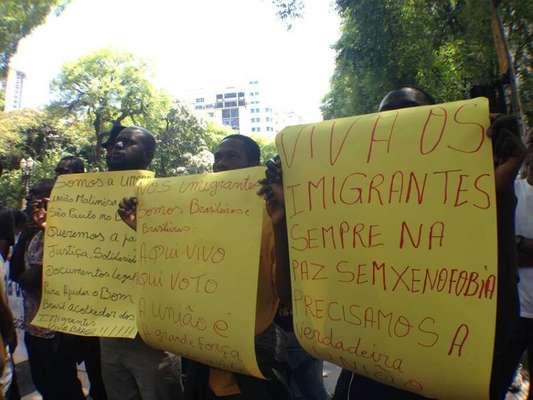 Somos a União
União Malinesa
São Paulo no
Queremos a paz
Justiça, Solidariedade
Documentos legal
Para Ajudar o Bom
Brasil acolhedor dos
Imigrantes
!!!!
Nós imigrantes
Somos Brasileiros e
AQUI VIVO
AQUI VOTO
A UNIÃO É
A grande força
VIVA OS
IMIGRANTES
SEMPRE NA
PAZ SEM XENOFOBIA
PRECISAMOS A
verdadeira